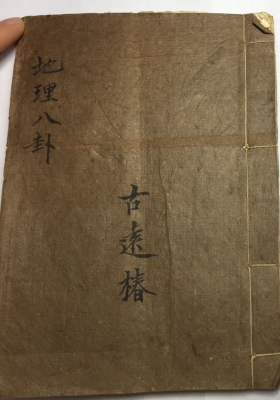 地理八卦
古遠椿